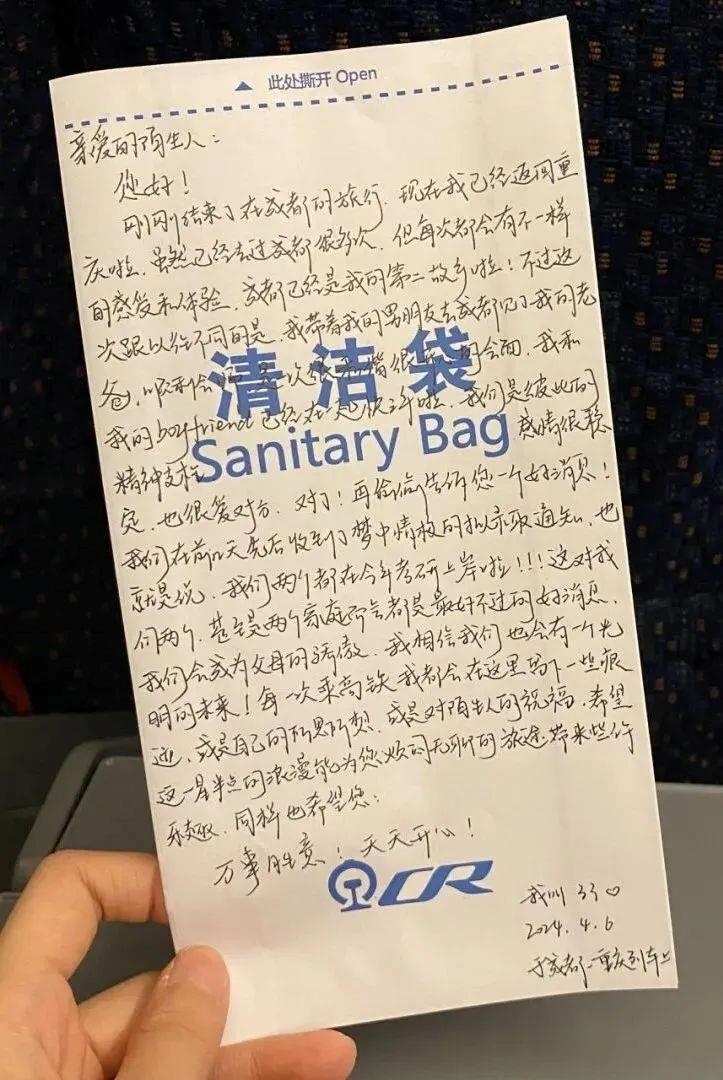 此处撕开 Open
亲爱的陌生人：
您好！
刚刚结束了在成都的旅行，现在我已经返回重
庆啦，虽然已经去过成都很多次，但每次都会有不一样
的感受和体验，成都已经是我的第二故乡啦！不过这
次跟以往不同的是，我带着我的男朋友去成都见了我的老
爸，顺利会 一次很 很 的会面，我和
我的boyfriend已经在一起 啦，我们是彼此的
清洁袋
精神支柱 感情很稳
Sanitary Bag
定，也很爱对方，对了！再给您告诉您一个好消息！
我们在前几天先后收到了梦中情校的拟录取通知，也
就是说，我们两个都在今年考研上岸啦！！！这对我
们两个，甚至是两个家庭而言都是最好不过的好消息，
我们会成为父母的骄傲，我相信我们也会有一个光
明的未来！每一次乘高铁我都会在这里写下一些痕
迹，或是自己的所思所想，或是对陌生人的祝福，希望
这一星半点的浪漫能为您烦闷无聊的旅途带来些许
乐趣，同样也希望您：
万事胜意！天天开心！
CR
我叫
2024.4.6
于成都-重庆列车上